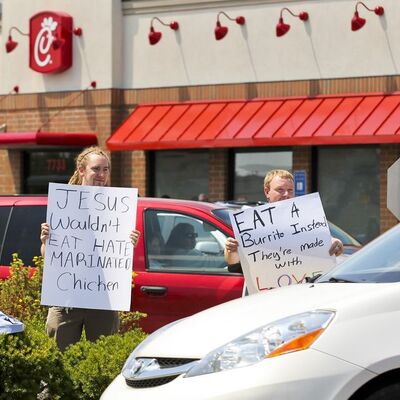 7733
JESUS
Wouldn't
EAT HATE
MARINATED
Chicken
EAT A
Burrito Instead
They're made
with
LOVE